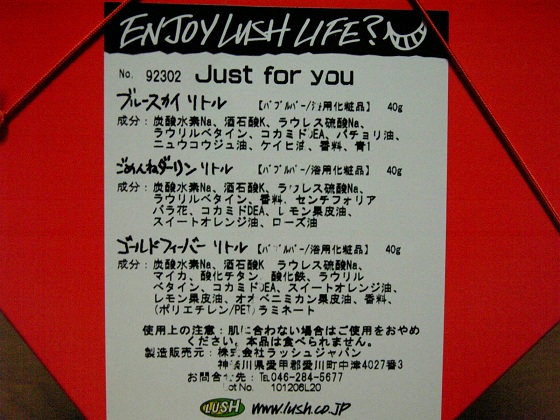 ENJOY LUSH LIFE?
No. 92302 Just for you
ブルースカイ リトル 【バブルバー/浴用化粧品】 40g
成分：炭酸水素Na、酒石酸K、ラウレス硫酸Na、
ラウリルベタイン、コカミドDEA、パチョリ油、
ニュウコウジュ油、ケイヒ油、香料、青1
ごめんねダーリン リトル 【バブルバー/浴用化粧品】 40g
成分：炭酸水素Na、酒石酸K、ラウレス硫酸Na、
ラウリルベタイン、香料、センチフォリア
バラ花、コカミドDEA、レモン果皮油、
スイートオレンジ油、ローズ油
ゴールドフィーバー リトル 【バブルバー/浴用化粧品】 40g
成分：炭酸水素Na、酒石酸K ラウレス硫酸Na、
マイカ、酸化チタン 酸化鉄、ラウリル
ベタイン、コカミドDEA、スイートオレンジ油、
レモン果皮油、オオベニミカン果皮油、香料、
(ポリエチレン/PET)ラミネート
使用上の注意：肌に合わない場合はご使用をおやめ
ください。本品は食べられません。
製造販売元：株式会社ラッシュジャパン
神奈川県愛甲郡愛川町中津4027番3
お問合わせ先：TEL046-284-5677
Lot No. 101206L20
LUSH www.lush.co.jp